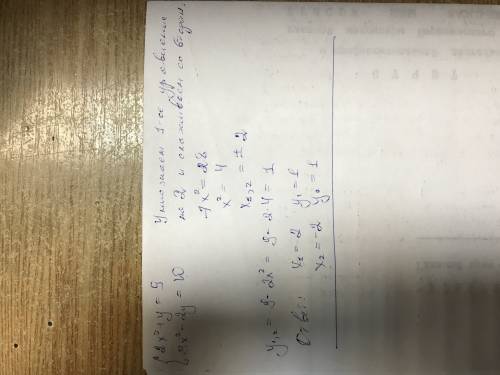 {2x²+y = 9
{3x²-2y = 10
Умножаем 1-ое уравнение
на 2 и складываем со вторым.
7x² = 28
x² = 4
x₁,₂ = ± 2
y₁,₂ = 9-2x² = 9-2·4 = 1
Ответ: x₁ = 2 y₁ = 1
x₂ = -2 y₂ = 1